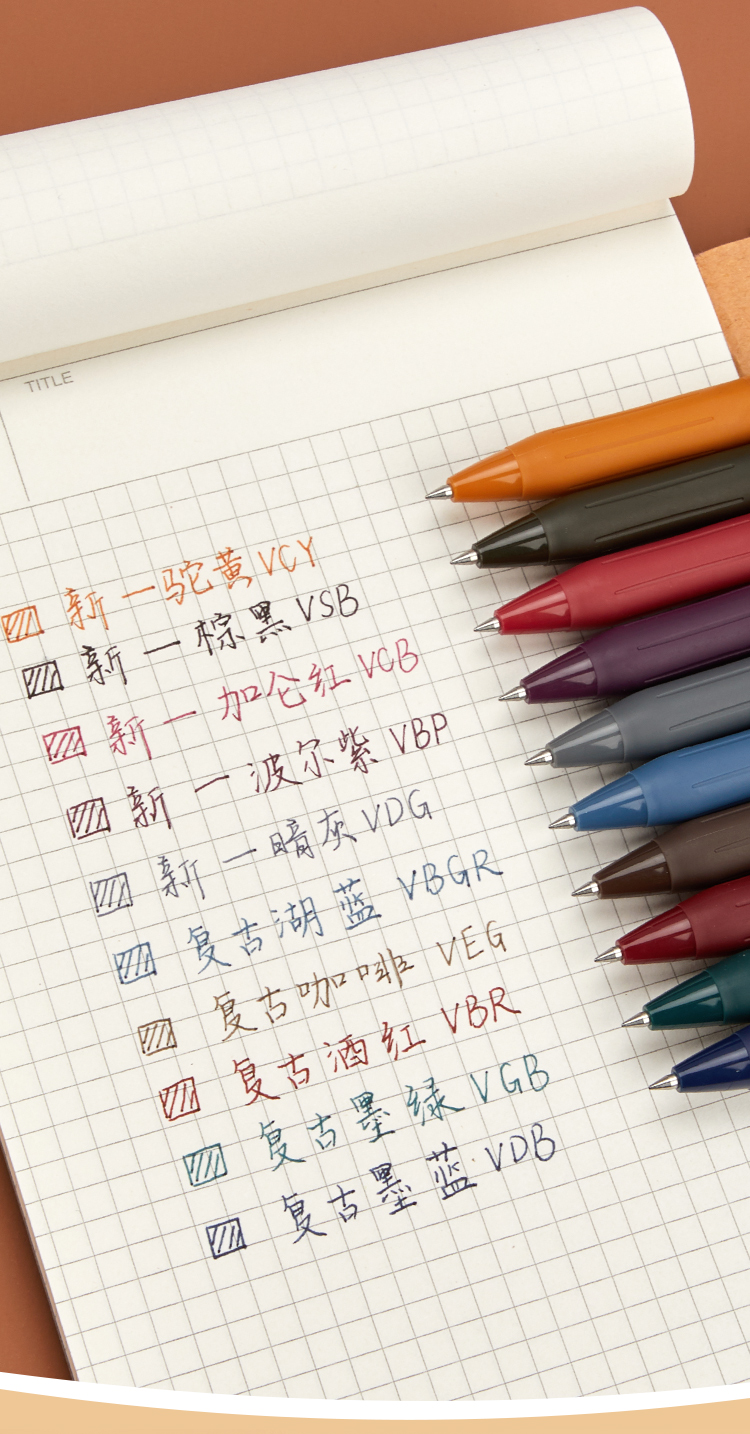 TITLE
新一驼黄 VCY
新一棕黑 VSB
新一加仑红 VCB
新一波尔紫 VBP
新一暗灰 VDG
复古湖蓝 VBGR
复古咖啡 VEG
复古酒红 VBR
复古墨绿 VGB
复古墨蓝 VDB